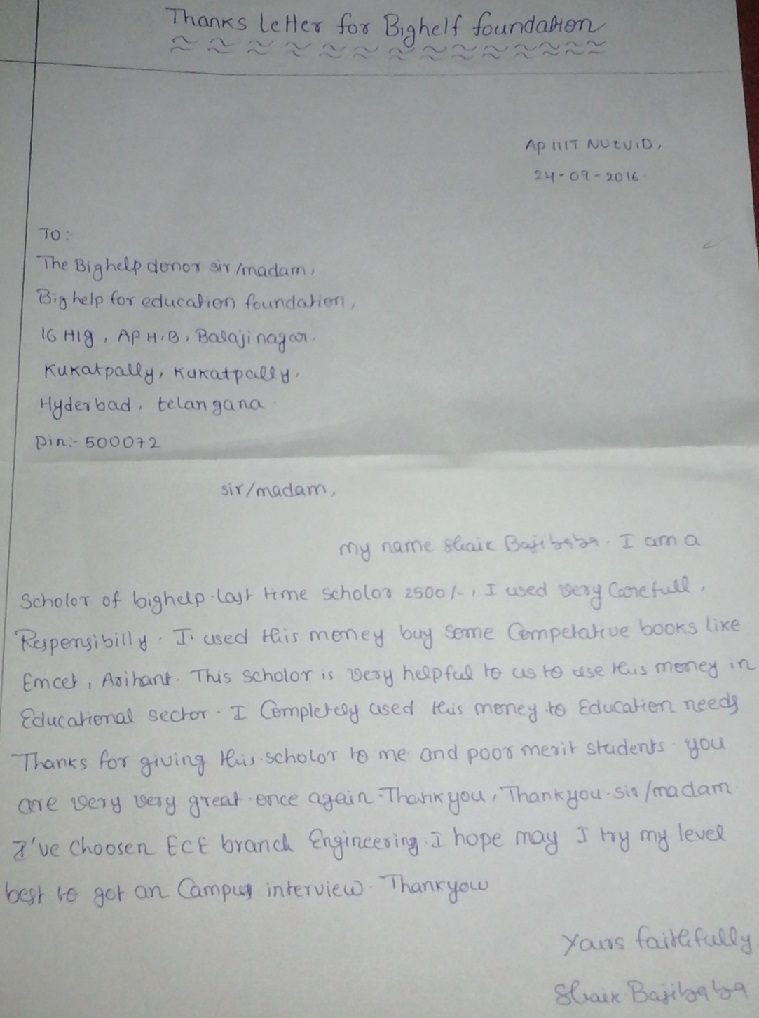 Thanks Letter for Bighelf foundation
AP IIIT NUZVID,
24-09-2016
TO:
The Bighelp donor sir/madam,
Big help for education foundation,
16 HIg, AP H.B, Balaji nagar.
Kukatpally, Kukatpally.
Hyderbad, telangana
pin:- 500072
sir/madam,
my name Shaik Bajibaba. I am a
Scholor of bighelp. last time scholor 2500/-, I used very Carefull,
Responsibilly. I used this money buy some Competative books like
Emcet, Arihant. This scholor is very helpful to us to use this money in
Educational sector. I Completely used this money to Education needs
Thanks for giving this scholor to me and poor merit students. you
are very very great once again Thankyou, Thankyou. sir/madam
I've choosen ECE branch Engineering. I hope may I try my level
best to got an Campus interview. Thankyou
Yours faithfully
Shaik Bajibaba